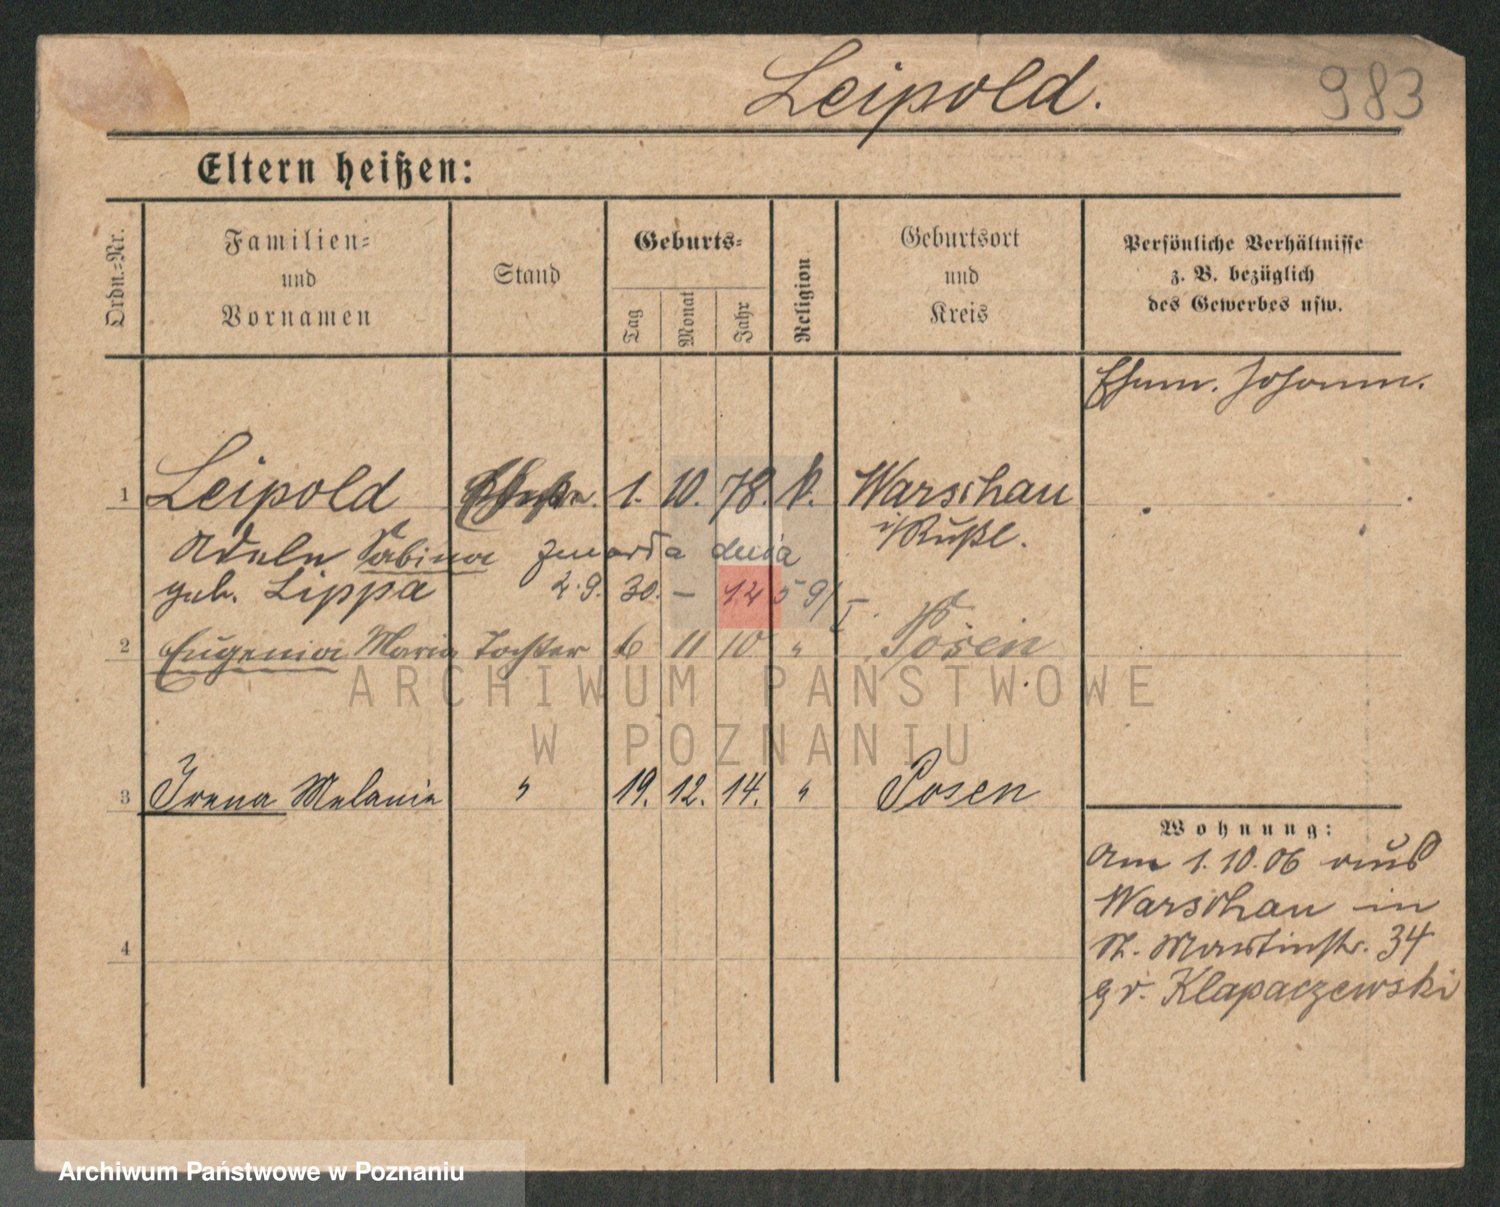 Leipold. 983
Eltern heißen:
Ordn.-Nr.
Familien-
und
Vornamen
Stand
Geburts-
Tag
Monat
Jahr
Religion
Geburtsort
und
Kreis
Persönliche Verhältnisse
z. B. bezüglich
des Gewerbes usw.
Ehem. Johann.
1 Leipold 1. 10. 78. k. Warschau
i/Rußl.
Adele Sabina zmarła dnia
geb. Lippa 2.9. 30. – 1259/I.
2 Eugenia Maria Tochter 6 11 10 " Posen
3 Irena Melanie " 19. 12. 14. " Posen
4
Wohnung:
Am 1.10.06 aus
Warschau in
St. Martinstr. 34
Klapaczewski
ARCHIWUM PAŃSTWOWE
W POZNANIU
Archiwum Państwowe w Poznaniu